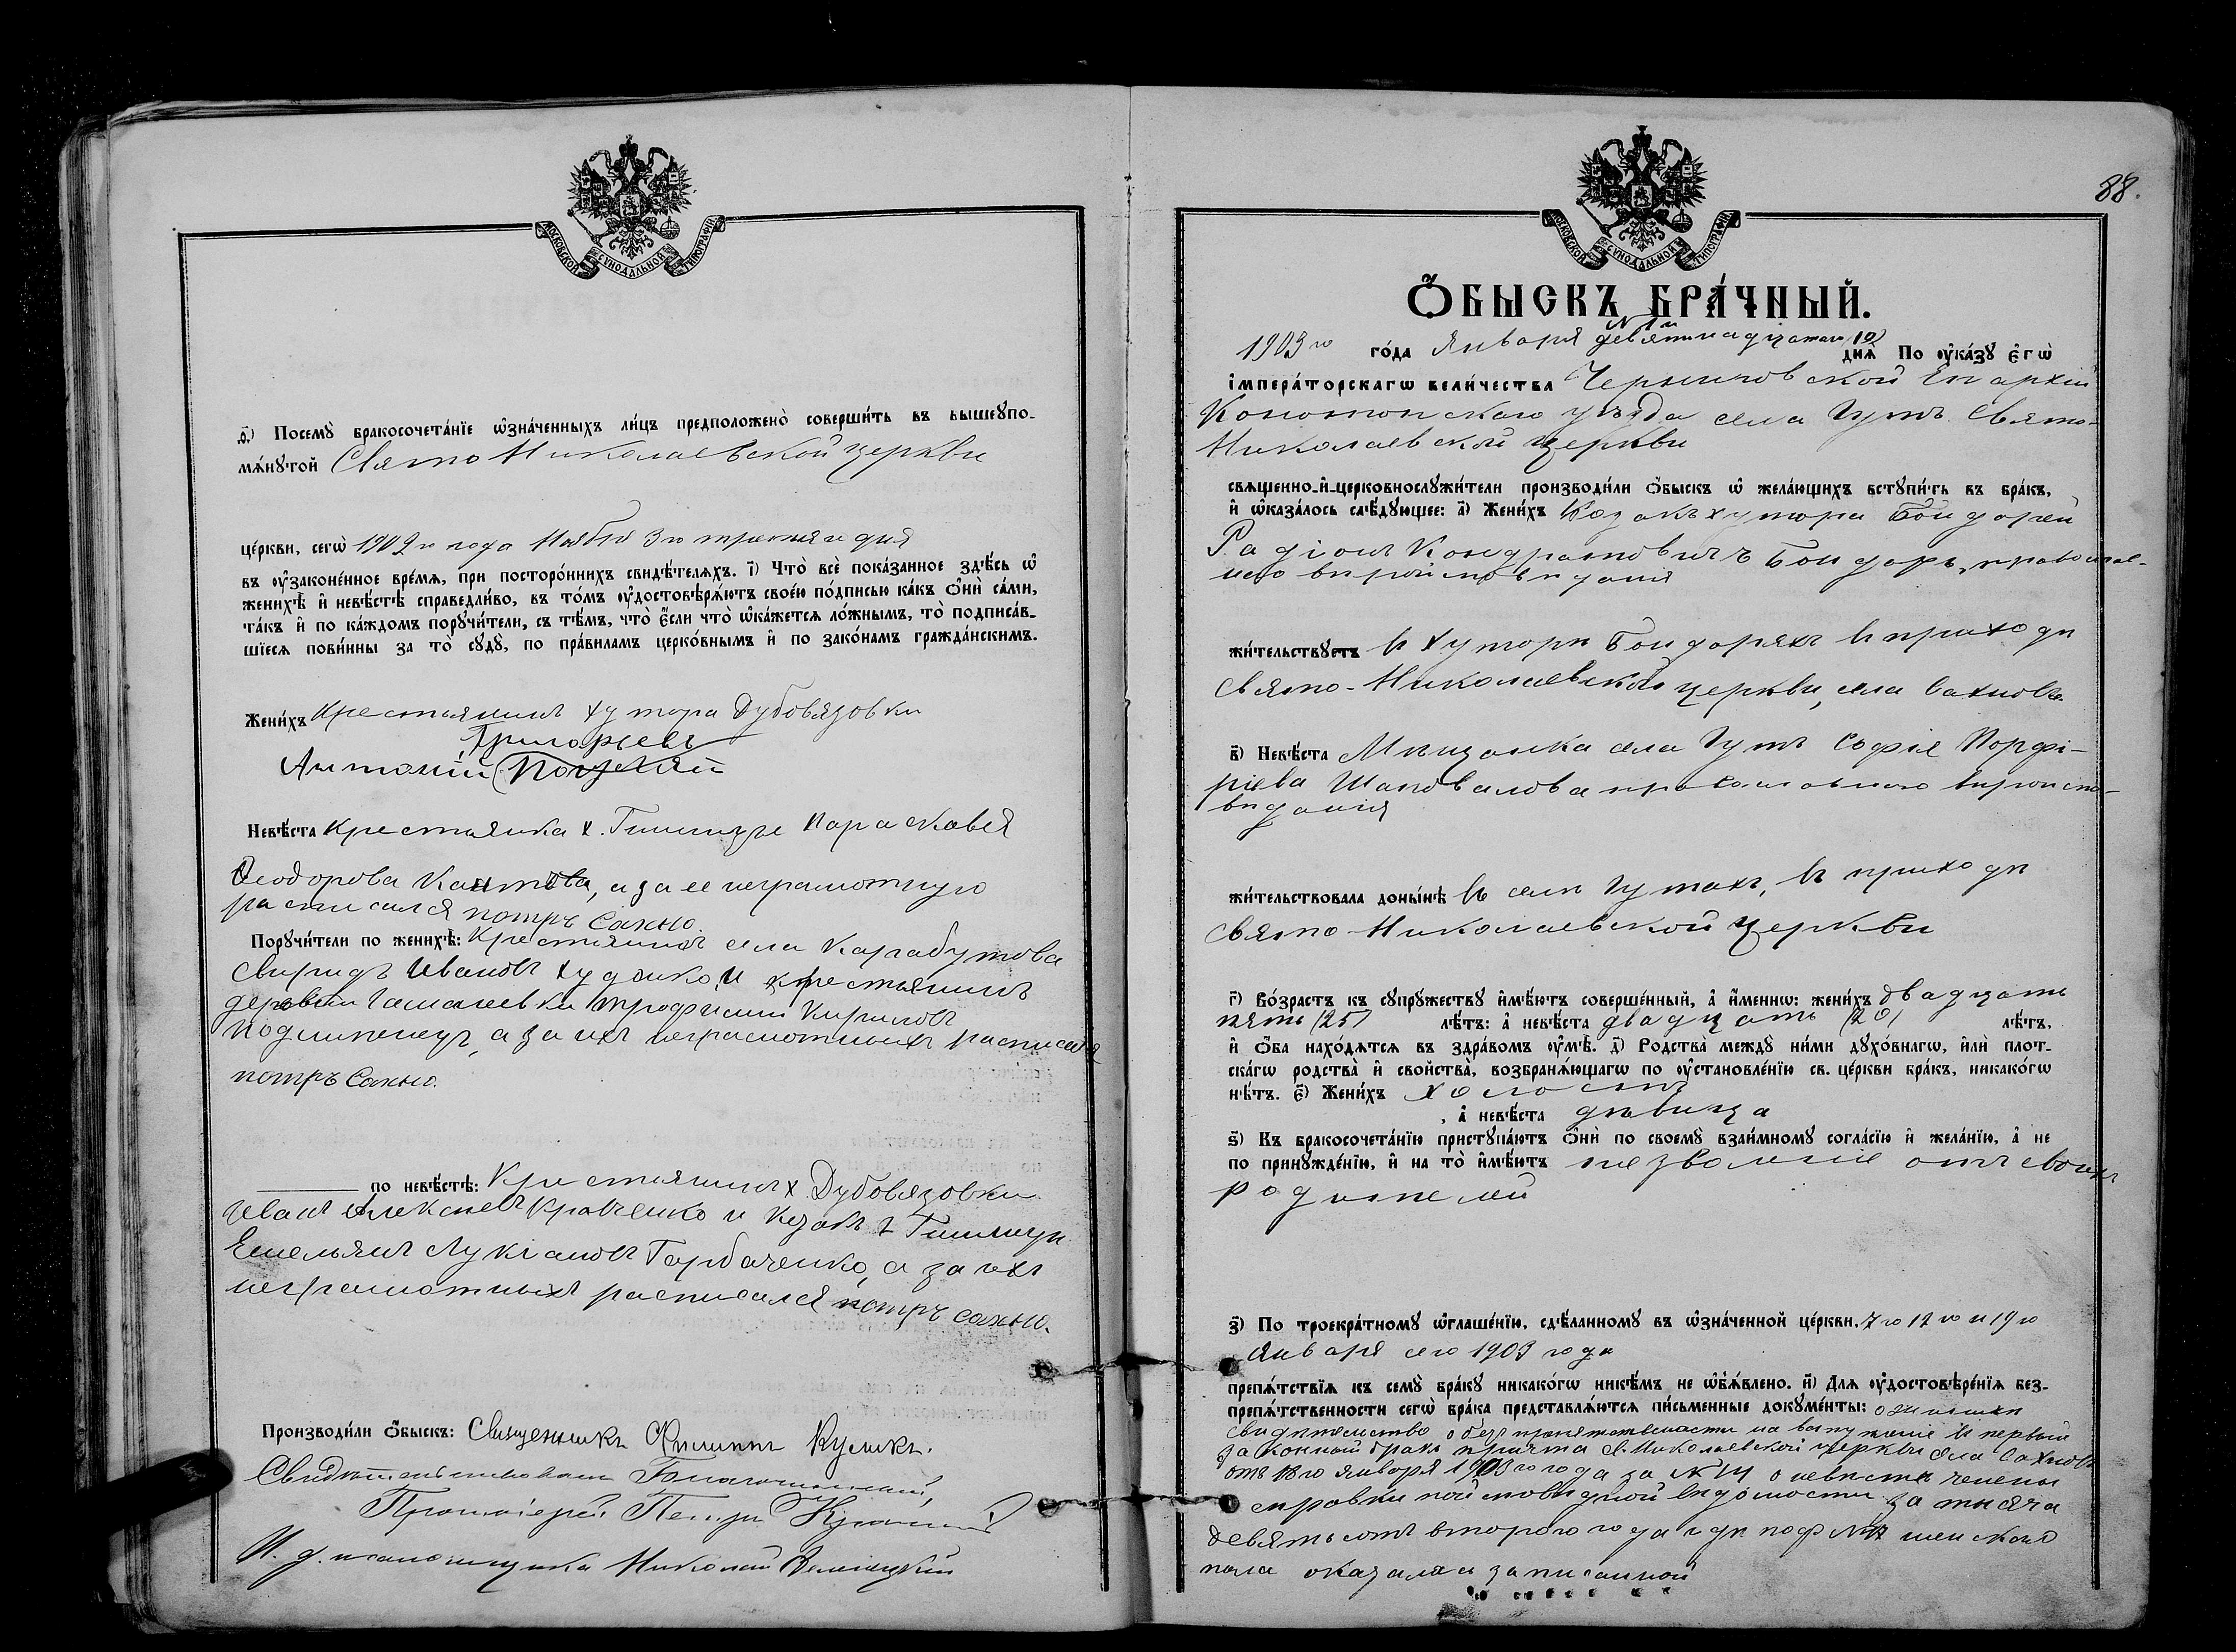 МОСКОВСКОЙ СѴНОДАЛЬНОЙ ТИПОГРАФІИ
ѳ҃) Посемꙋ̀ бракосочета́нїе ѡ҆зна́ченныхъ ли́цъ предположено̀ соверши́ть въ вышеꙋпо-
мѧ́нꙋтой Свято Николаевской церкви
це́ркви, сегѡ̀ 1902 го года Ноября 3 го третяго дня
въ ᲂу҆зако́нное вре́мѧ, при посторо́ннихъ свидѣ́телѧхъ. і҃) Что̀ всѐ пока́занное здѣ́сь ѡ҆
женихѣ̀ и҆ невѣ́стѣ справедли́во, въ то́мъ ᲂу҆достовѣрѧ́ютъ свое́ю по́дписью ка́къ ѻ҆нѝ са́ми,
та́къ и҆ по ка́ждомъ порꙋчи́тели, съ тѣ́мъ, что̀ є҆́сли что̀ ѡ҆ка́жетсѧ ло́жнымъ, то̀ подписа́в-
шїесѧ пови́нны за то̀ сꙋдꙋ̀, по пра́виламъ церко́внымъ и҆ по зако́намъ гражда́нскимъ.
Жени́хъ крестьянинъ хутора Дубовязовки
Григорьевъ
Антоній Поцелуй
Невѣ́ста крестьянка х. Гиммизге Парасковея
Ѳеодорова, а за ее неграмотную
расписался Петръ Сахно.
Порꙋчи́тели по женихѣ̀: Крестьянинъ села Карабутова
Свиридъ Ивановъ Худенко, и крестьянинъ
деревни Гамалеевки Трофимъ Кириловъ
Подлипенецъ, а за ихъ неграмотныхъ расписался
Петръ Сахно.
по невѣ́стѣ: Крестьянинъ х. Дубовязовки
Иванъ Алексѣевъ Кравченко и козакъ х.
Емельянъ Лукіановъ Горбаченко, а за ихъ
неграмотныхъ расписался Петръ Сахно.
Производи́ли ѻ҆́быскъ: Священникъ Филиппъ Куликъ.
Свидѣтельствовалъ Благочинный,
Протоіерей Петръ
И. д. псаломщика Николай
88.
МОСКОВСКОЙ СѴНОДАЛЬНОЙ ТИПОГРАФІИ
Ѻ҆́БЫСКЪ БРА́ЧНЫЙ.
№ 1 й
1903 го го́да Января девятнадцатаго (19) днѧ̀ По ᲂу҆ка́зꙋ є҆гѡ̀
і҆мпера́торскагѡ вели́чества Черниговской Епархіи
Конотопскаго уѣзда села Гутъ Свято-
Николаевской церкви
свѧщенно-и҆-церковнослꙋжи́тели производи́ли ѻ҆́быскъ ѡ҆ жела́ющихъ встꙋпи́ть въ бра́къ,
и҆ ѡ҆каза́лось слѣ́дꙋющее: а҃) Жени́хъ Козакъ хутора Бондарей
Радіонъ Кондратовичъ Бондарь, православ-
наго вѣроисповѣданія
жи́тельствꙋетъ въ хуторѣ Бондаряхъ въ приходѣ
Свято-Николаевской церкви, села Сахновки
в҃) Невѣ́ста Мѣщанка села Гутъ Софія Порфи-
ріева Шаповалова православнаго вѣроиспо-
вѣданія
жи́тельствовала доны́нѣ въ селѣ Гутахъ, въ приходѣ
Свято-Николаевской церкви
г҃) Во́зрастъ къ сꙋпрꙋ́жествꙋ и҆мѣ́ютъ соверше́нный, а҆̀ и҆́менны: жени́хъ двадцать
пять (25) лѣ́тъ: а҆̀ невѣ́ста двадцать (20) лѣ́тъ,
и҆ ѻ҆́ба нахо́дѧтсѧ въ здра́вомъ ᲂу҆мѣ̀. д҃) Родства̀ междꙋ̀ ни́ми дꙋхо́внагѡ, и҆лѝ плот-
ска́гѡ родства̀ и҆ сво́йства, возбранѧ́ющагѡ по ᲂу҆становле́нїю св. це́ркви бра́къ, никако́гѡ
нѣ́тъ. є҃) Жени́хъ холостъ
, а҆̀ невѣ́ста дѣвица
ѕ҃) Къ бракосочета́нїю пристꙋпа́ютъ ѻ҆нѝ по своемꙋ̀ взаи́мномꙋ согла́сїю и҆ жела́нїю, а҆̀ не
по принꙋжде́нїю, и҆ на то̀ и҆мѣ́ютъ позволеніе отъ своихъ
родителей
з҃) По троекра́тномꙋ ѡ҆глаше́нїю, сдѣ́ланномꙋ въ ѡ҆зна́ченной це́ркви, 7 го 12 го и 19 го
Января сего 1903 года
препѧ́тствїѧ къ семꙋ̀ бра́кꙋ никако́гѡ никѣ́мъ не ѡ҆б̾ѧ́влено. и҃) Длѧ ᲂу҆достовѣре́нїѧ без-
препѧ́тственности сегѡ̀ бра́ка представлѧ́ютсѧ пи́сьменные докꙋме́нты: о женихѣ
свидѣтельство о безпрепятственности на вступленіе въ первый
законный бракъ причта Св. Николаевской церкви села Сахновки
отъ 18 го Января 1903 го года за № 14 о невѣстѣ
справки исповѣдной вѣдомости за тысяча
девятьсотъ второго года гдѣ подъ № 17 женскаго
пола оказалась записанной